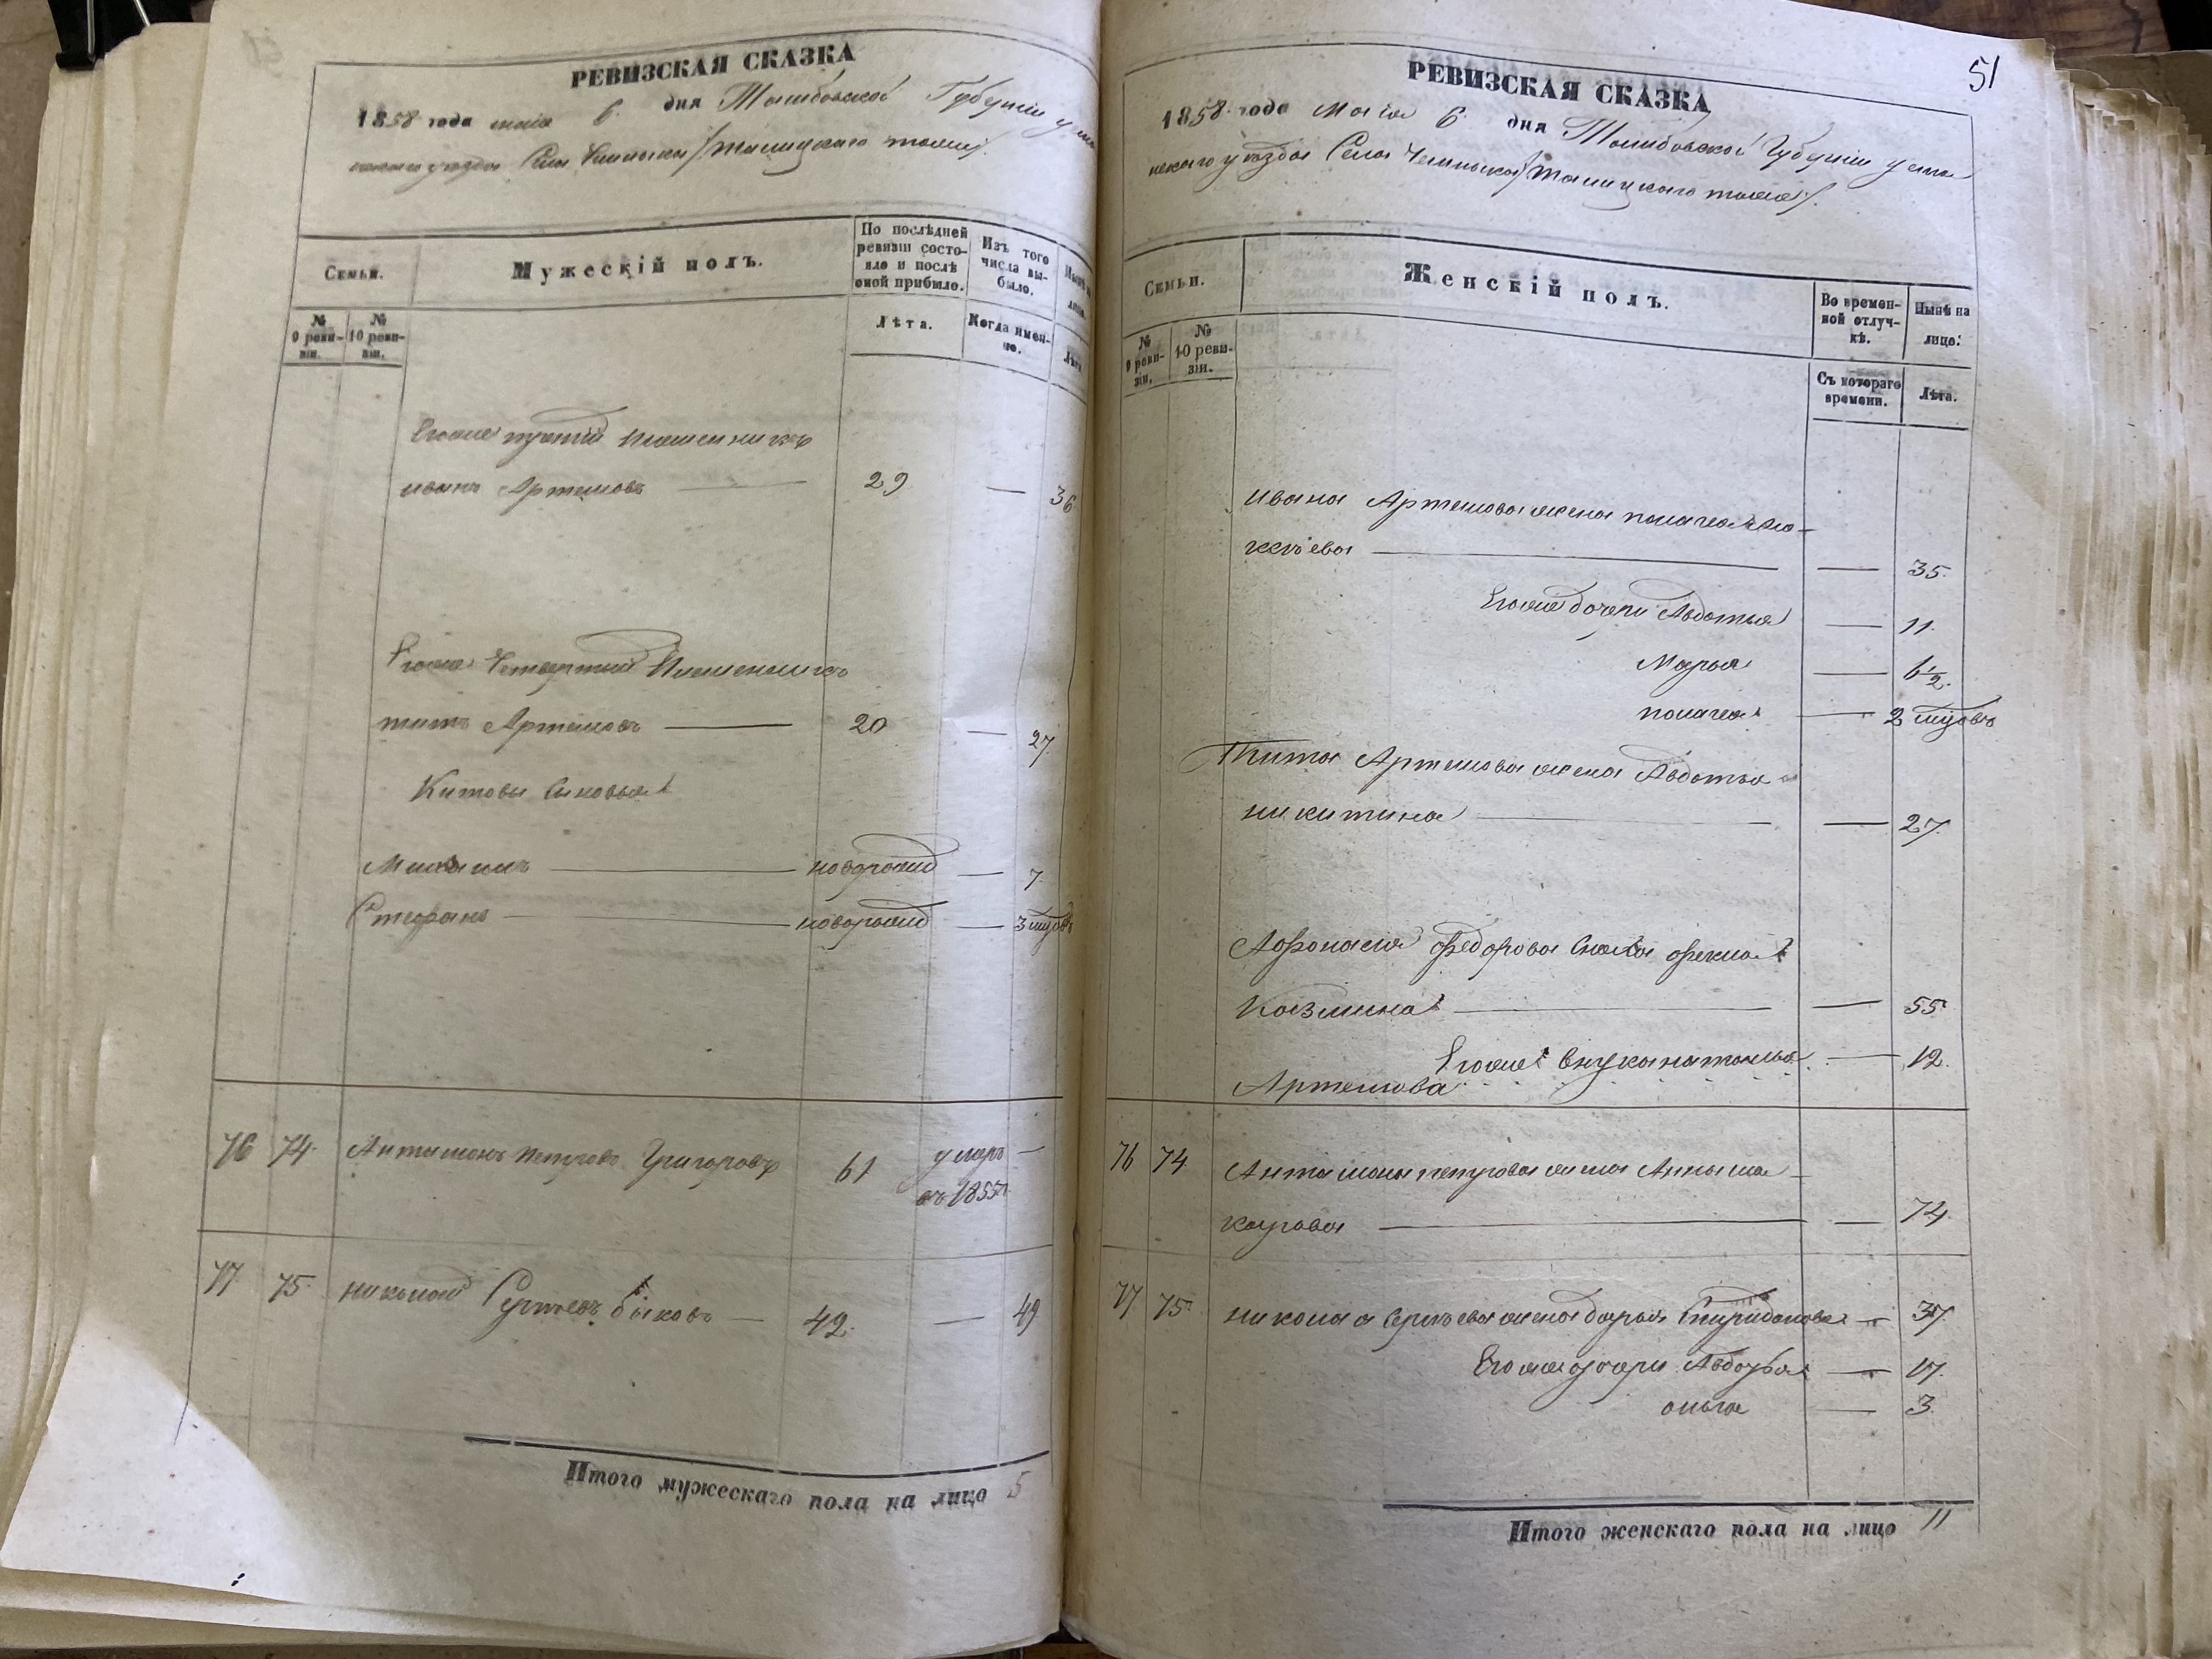 РЕВИЗСКАЯ СКАЗКА
1858 года маія 6. дня Тамбовской Губерніи усма
нскаго уѣзда Села /талицкаго тожъ/.
Семьи.
Мужескій полъ.
По послѣдней ревизіи состояло и послѣ оной прибыло.
Изъ того числа выбыло.
№ 9 ревизіи.
№ 10 ревизіи.
Лѣта.
Когда именно.
Лѣта
Егоже третій племенникъ
иванъ Артемовъ 29 — 36
Егоже Четвертый Племенникъ
титъ Артемовъ 20 — 27
Китовы сыновья
Михаилъ новорожд — 7
Стефанъ новорожд — 3
76 74. Антамонъ петровъ Григоровъ 61 умеръ —
въ 1855г.
77 75. николай Сергѣевъ Быковъ — 42. — 49
Итого мужескаго пола на лицо 5
51
РЕВИЗСКАЯ СКАЗКА
1858 года Маія 6 дня Тамбовской Губерніи усма
нскаго уѣзда Села /талицкаго тожъ/.
Семьи.
Женскій полъ.
Во временной отлучкѣ.
Нынѣ на лицо.
№ 9 ревизіи.
№ 10 ревизіи.
Съ котораго времени.
Лѣта.
ивана Артемова жена
— 35.
Егоже дочери Авдотья — 11.
Марья — 6½.
— 2
Тита Артемова жена Авдотья
никитина — 27
Афонасья Федорова фекла
Козмина — 55
Егоже внука наталья — 12.
Артемова
76 74 Антамона петрова жена Анна ма-
карова — 74
77 75. никола а Сергѣева жена дарья Спиридонова — 37.
Егоже дочери Авдотья — 17.
ольга — 3.
Итого женскаго пола на лицо 11